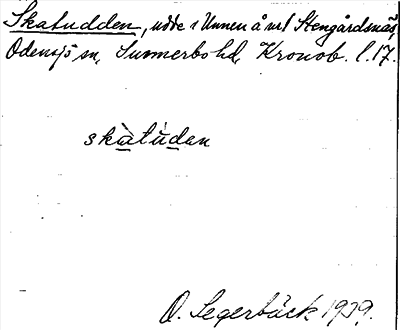 Skatudden, udde i Unnen å vid Stengårdsnäs,
Odensjö sn, Sunnerbo hd, Kronob. l. 17.
skàtúdan
O. Segerbäck 1929.